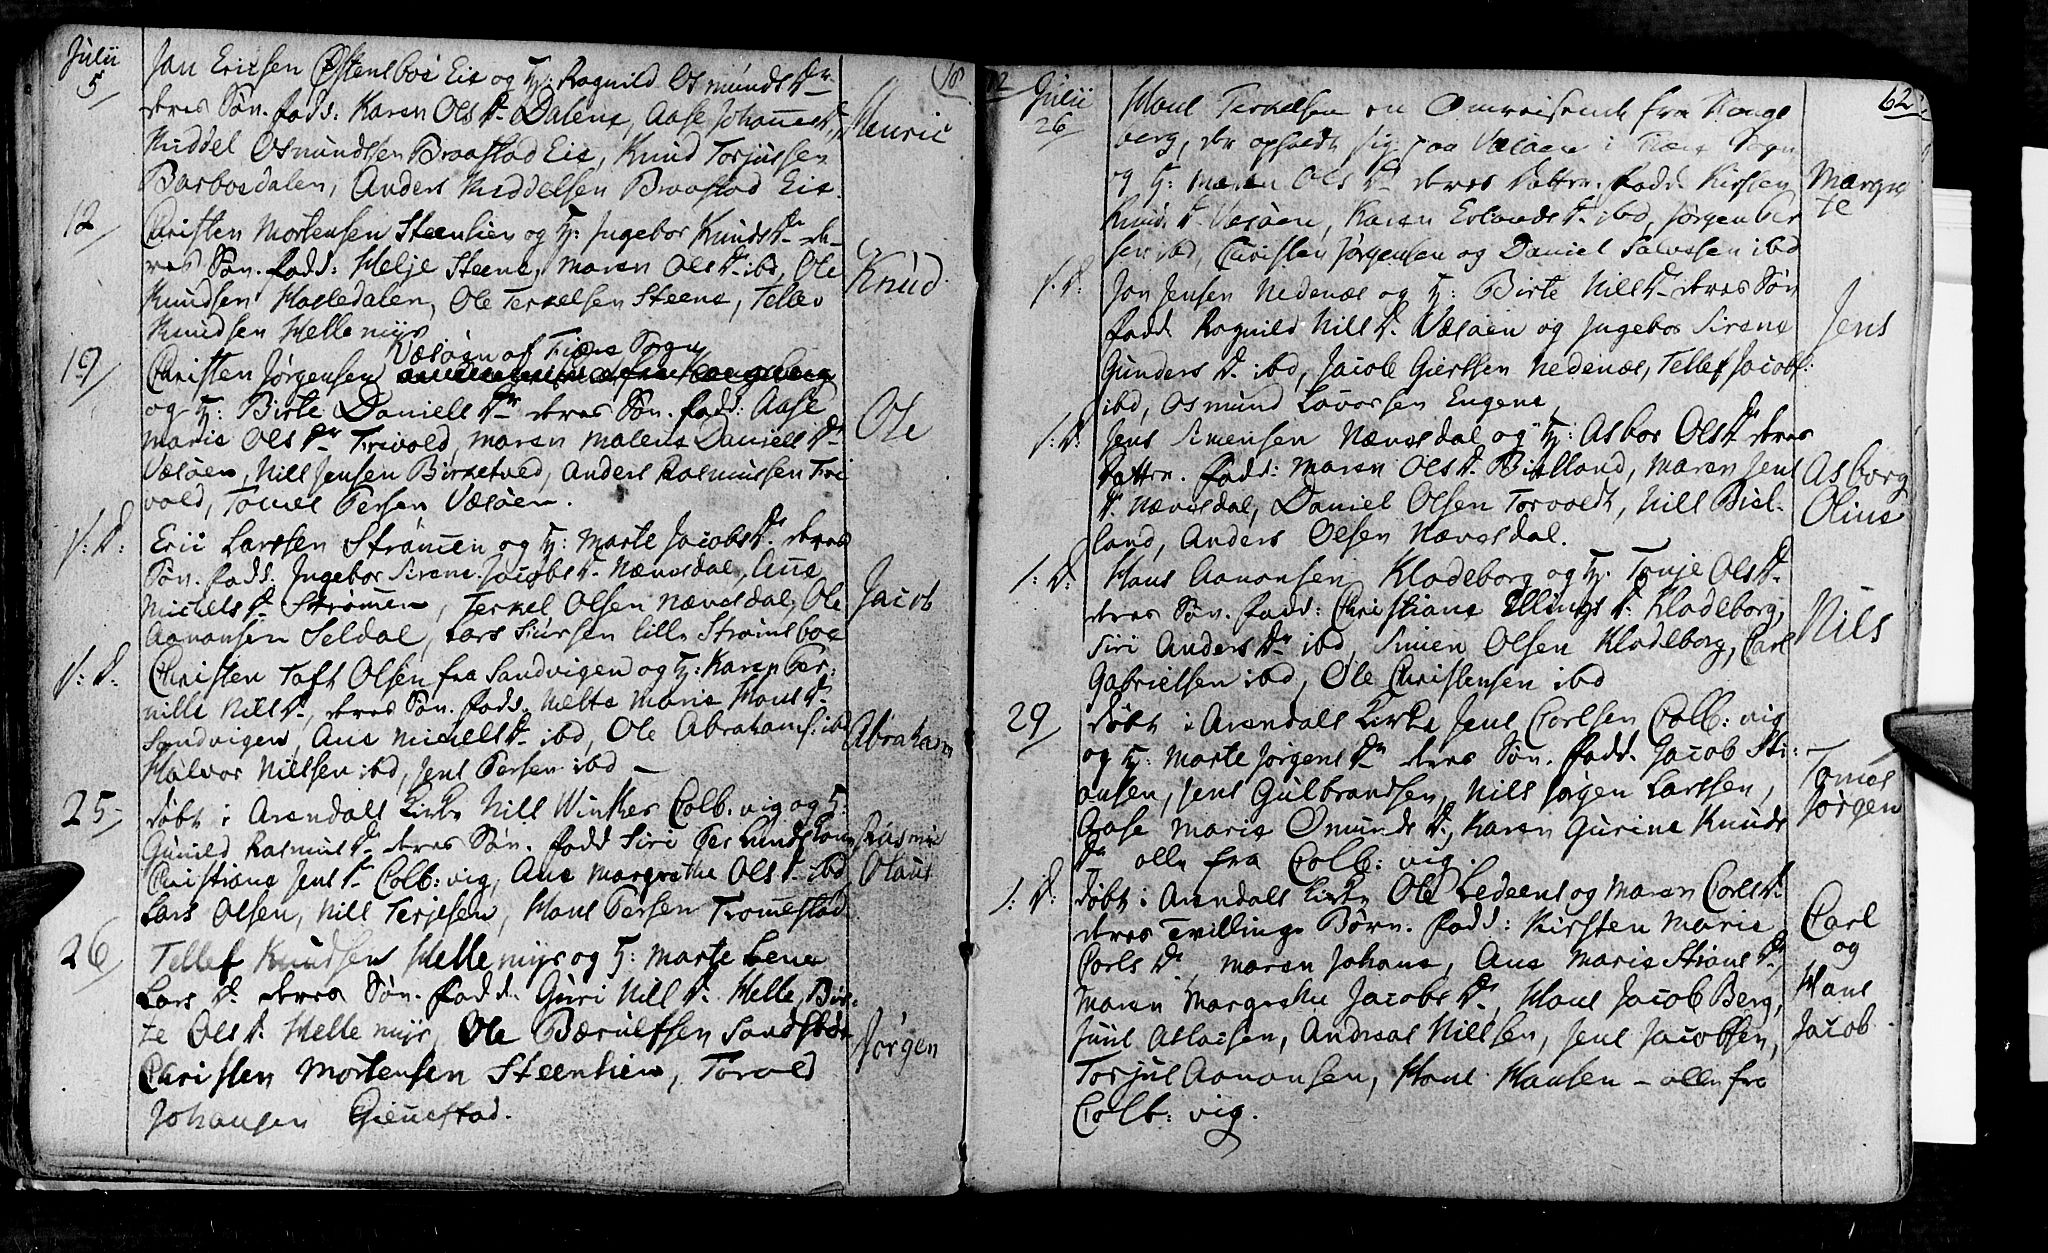 18
Julii
5 Jan Ericsen Østensboe Eie og H: Ragnild Osmunds Dr
deres Søn. fadd: Karen Ols Dr Dalene, Aase Johannes Dr
Kiddel Osmundssen Braastad Eie, Knud Torjussen
Barboedalen, Anders Kiddelsen Braastad Eie.
Henric
12 Christen Mortensen Steenlien og H: Ingebor Knuds Dr de-
res Søn. fadd: Helje Steene, Maren Ols Dr ibd, Ole
Knudsen Hasledalen, Ole Terkelsen Steene, Tellev
Knudsen Hellemyr
Knud
Væsøen af Fiære Sogn
19 Christen Jørgensen
og H: Birte Daniels Dr deres Søn. fadd: Aase
Marie Ols Dr Frivold, Maren Malene Daniels Dr
Væsøen, Nils Jensen Birketved, Anders Rasmussen Fri
vold, Tomes Persen Væsøen.
Ole
S: D: Eric Larssen Strømen og H: Marte Jacobs Dr deres
Søn. fadd. Ingebor Sirene Jacobs Dr Nævesdal, Ane
Michels Dr Strømen, Terkel Olsen Nævesdal, Ole
Aanonsen Seldal, Lars Siursen lille Strømsboe
Jacob
S: D: Christen Toft Olsen fra Sandvigen og H: Karen Per-
nille Nils Dr, deres Søn. fadd. Mette Marie Hans Dr
Sandvigen, Ane Michels Dr ibd, Ole Abrahams: ibd
Halvor Nielsen ibd, Jens Persen ibd
Abraham
25 døbt i Arendals Kirke Nils Winther Colb: vig og H:
Gunild Rasmus Dr deres Søn. fadd Siri Per Lunds Kone
Christiane Jens Dr Colb: vig, Ane Margrethe Ols Dr ibd
Lars Olsen, Nils Terjesen, Hans Persen Tromestad
Rasmus
Olaus
26 Tellef Knudsen Hellemyr og H: Marte Lene
Lars Dr deres Søn. fadd. Guri Nils Dr Helle, Bir-
te Ols Dr Hellemyr, Ole Bærulfsen Sandsbør
Christen Mortensen Steenlien, Torvold
Johansen Gienestad.
Jørgen
62
Julii
26 Hans Terkelsen en Omreisende fra Kongs
berg, der opholdt sig paa Væsøen i Fiære Sogn
og H: Maren Ols Dr deres Datter. fadd. Kirsten
Knuds Dr Væsøen, Karen Evlands Dr ibd, Jørgen Per
sen ibd, Christen Jørgensen og Daniel Salvesen ibd
Margre
te
S: D: Jon Jensen Nedenæs og H: Birte Nils Dr deres Søn
fadd. Ragnild Nils Dr Væsøen og Ingebor Sirene
Gunders Dr ibd, Jacob Giertsen Nedenæs, Tellef Jacobs:
ibd, Osmund Lavorsen Engene
Jens
S: D: Jens Simensen Nævesdal og H: Asbor Ols Dr deres
Datter. fadd: Maren Ols Dr Bielland, Maren Jens
Dr Nævesdal, Daniel Olsen Torvoldt, Nils Biel-
land, Anders Olsen Nævesdal.
Asborg
Oline
S: D: Hans Aanonsen Kladeborg og H. Tonje Ols Dr
deres Søn. fadd: Christiane Ellings Dr Kladeborg,
Siri Anders Dr ibd, Simen Olsen Kladeborg, Carl
Gabrielsen ibd, Ole Christensen ibd
Nils
29 døbt i Arendals Kirke Jens Carlsen Colb: vig
og H: Marte Jørgens Dr deres Søn. fadd. Jacob Sti-
ansen, Jens Gulbrandsen, Nils Jørgen Larssen,
Aase Marie Omunds Dr, Karen Gurine Knuds
Dr alle fra Colb: vig.
Tomes
Jørgen
S: D: døbt i Arendals Kirke Ole Ledeens og Maren Carls Dr
deres Tvillinge Børn. fadd: Kirsten Marie
Carls Dr, Maren Johans, Ane Marie Stians Dr,
Maren Margrethe Jacobs Dr, Hans Jacob Berg,
Juul Aslaksen, Andreas Nilssen, Jens Jacobsen,
Torjul Aanonsen, Hans Hansen - alle fra
Colb: vig.
Carl
og
Hans
Jacob